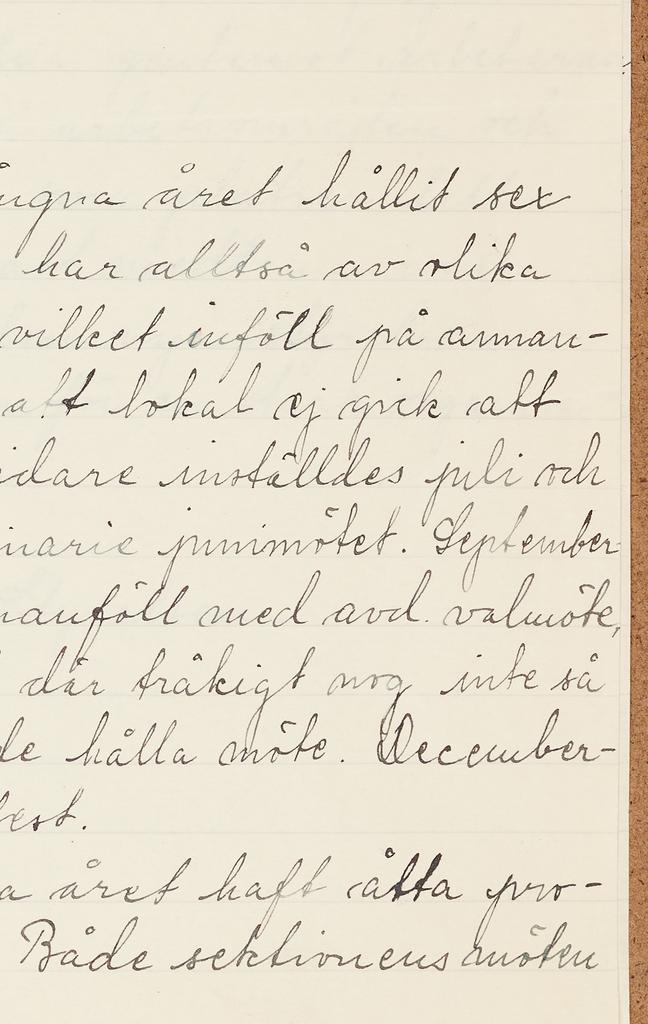 ngna året hållit sex
har alltså av olika
vilket inföll på annan-
att lokal ej gick att
idare inställdes juli och
narie junimötet. September-
manföll med avd. valmöte,
där tråkigt nog inte så
de hålla möte. December-
fest.
a året haft åtta pro-
Både sektionens möten